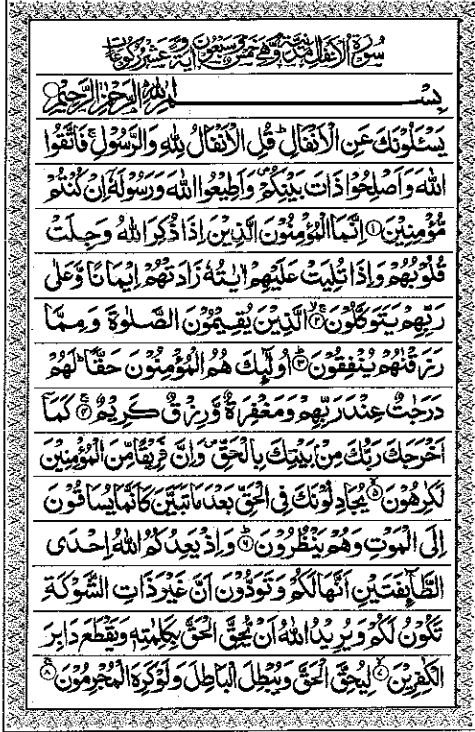 سُوْرَةُ الْاَنْفَالِ مَدَنِيَّةٌ وَّهِيَ خَمْسٌ وَّسَبْعُوْنَ اٰيَةً وَّعَشْرُ رُكُوْعَاتٍ
بِسْمِ اللهِ الرَّحْمٰنِ الرَّحِيْمِ
يَسْـَٔلُوْنَكَ عَنِ الْاَنْفَالِ ؕ قُلِ الْاَنْفَالُ لِلّٰهِ وَالرَّسُوْلِ ۚ فَاتَّقُوا
اللهَ وَاَصْلِحُوْا ذَاتَ بَيْنِكُمْ ۪ وَاَطِيْعُوا اللهَ وَرَسُوْلَهٗٓ اِنْ كُنْتُمْ
مُّؤْمِنِيْنَ ۝۱ اِنَّمَا الْمُؤْمِنُوْنَ الَّذِيْنَ اِذَا ذُكِرَ اللهُ وَجِلَتْ
قُلُوْبُهُمْ وَاِذَا تُلِيَتْ عَلَيْهِمْ اٰيٰتُهٗ زَادَتْهُمْ اِيْمَانًا وَّعَلٰى
رَبِّهِمْ يَتَوَكَّلُوْنَ ۝۲ۙ الَّذِيْنَ يُقِيْمُوْنَ الصَّلٰوةَ وَمِمَّا
رَزَقْنٰهُمْ يُنْفِقُوْنَ ۝۳ؕ اُولٰٓئِكَ هُمُ الْمُؤْمِنُوْنَ حَقًّا ؕ لَهُمْ
دَرَجٰتٌ عِنْدَ رَبِّهِمْ وَمَغْفِرَةٌ وَّرِزْقٌ كَرِيْمٌ ۝۴ۚ كَمَآ
اَخْرَجَكَ رَبُّكَ مِنْۢ بَيْتِكَ بِالْحَقِّ ۪ وَاِنَّ فَرِيْقًا مِّنَ الْمُؤْمِنِيْنَ
لَكٰرِهُوْنَ ۝۵ۙ يُجَادِلُوْنَكَ فِي الْحَقِّ بَعْدَ مَا تَبَيَّنَ كَاَنَّمَا يُسَاقُوْنَ
اِلَى الْمَوْتِ وَهُمْ يَنْظُرُوْنَ ۝۶ؕ وَاِذْ يَعِدُكُمُ اللهُ اِحْدَى
الطَّآئِفَتَيْنِ اَنَّهَا لَكُمْ وَتَوَدُّوْنَ اَنَّ غَيْرَ ذَاتِ الشَّوْكَةِ
تَكُوْنُ لَكُمْ وَيُرِيْدُ اللهُ اَنْ يُّحِقَّ الْحَقَّ بِكَلِمٰتِهٖ وَيَقْطَعَ دَابِرَ
الْكٰفِرِيْنَ ۝۷ۙ لِيُحِقَّ الْحَقَّ وَيُبْطِلَ الْبَاطِلَ وَلَوْ كَرِهَ الْمُجْرِمُوْنَ ۝۸ۚ